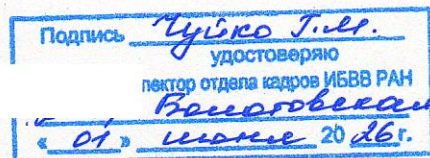 Подпись Чуйко Г.М.
удостоверяю
пектор отдела кадров ИБВВ РАН
Болотовская
« 01 » июня 20 26 г.